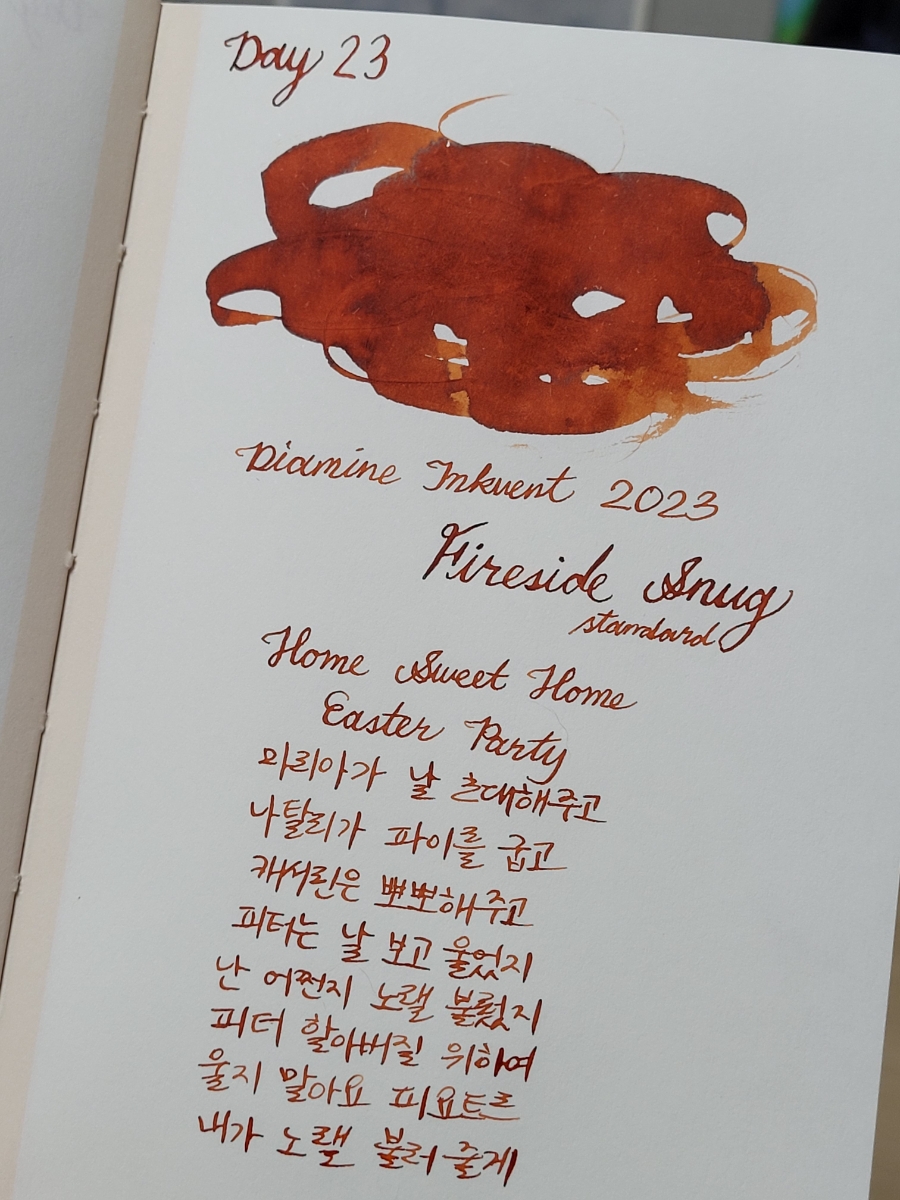 Day 23
Diamine Inkvent 2023
Fireside Snug
standard
Home Sweet Home
Easter Party
마리아가 날 초대해주고
나탈리가 파이를 굽고
캐서린은 뽀뽀해주고
피터는 날 보고 울었지
난 어쩐지 노랠 불렀지
피터 할아버질 위하여
울지 말아요 피요트르
내가 노랠 불러 줄게